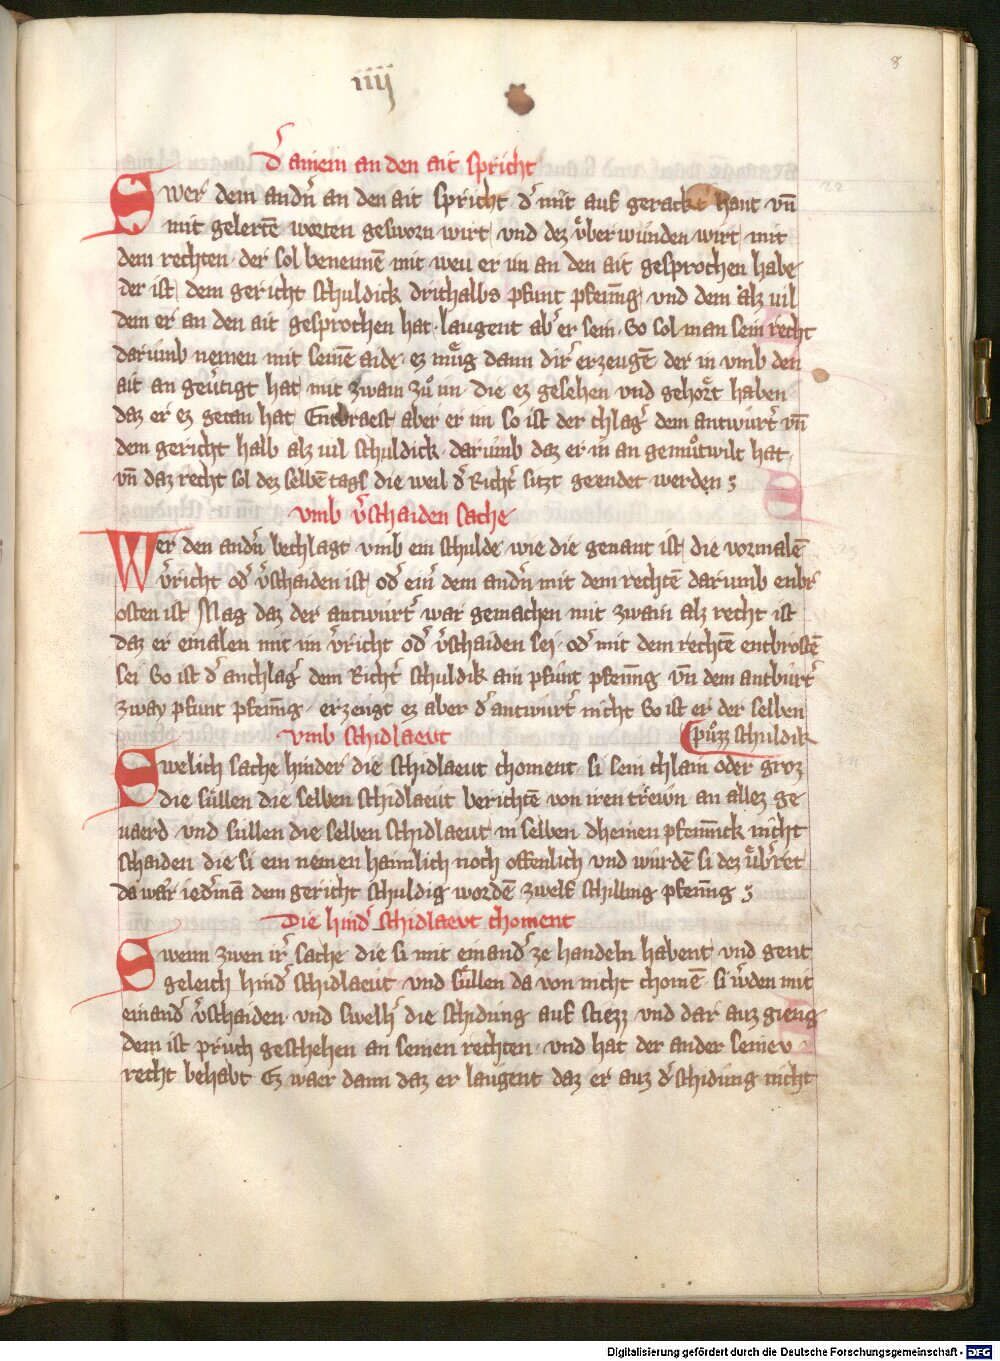 iiij
8
dˢ ainem an den ait spricht
Swer dem andñ an den ait spricht dˢ mit auf gerackt hant vñ
mit gelertē worten gesworn wirt vnd dez vͤberwunden wirt mit
dem rechten · der sol bennenē mit weu er im an den ait gesprochen habe
der ist dem gericht schuldick drithalbs pfunt pfennīg · vnd dem alz uil
dem er an den ait gesprochen hat · laugent abˢ er sein · So sol man sein recht
darumb nemen mit seinē aide · ez mug dann dirˢ erzeugē der in vmb den
ait an geutigt hat mit zwain zuͦ im · die ez gesehen vnd gehort haben
daz er ez getan hat Entbraest aber er im so ist der chlagˢ dem antwurtˢ vñ
dem gericht halb alz uil schuldick · darumb daz er in an gemuͦtwilt hat ·
vñ daz recht sol dez selbē tags die weil dˢ Richtˢ sitzt geendet werden
vmb vˢschaiden sache
Wer den andñ bechlagt vmb ein schulde wie die genant ist die vormalē
vˢricht odˢ vˢschaiden ist odˢ eimˢ dem andñ mit dem rechtē darumb enbr
osten ist Mag daz der antwurtˢ war gemachen mit zwain alz recht ist
daz er einmalen mit im vˢricht odˢ vˢschaiden sei · odˢ mit dem rechtē entbrostē
sei So ist dˢ anchlagˢ dem Richtˢ schuldik ain pfunt pfennīg vñ dem antwurtˢ
zway pfunt pfennīg · erzeugt ez aber dˢ antwurtˢ nicht So ist er der selben
vmb schidlaeut
puzz schuldik
Swelich sache hinder die schidlaeut choment · si sein chlain oder groz
die sullen die selben schidlaeut berichtē von iren trewn an allez ge
uaerd · vnd sullen die selben schidlaeut in selben dheinen pfennick nicht
schaiden die si ein nemen haimlich noch offenlich vnd wurdē si dez vͤbˢret
da war iedˢmā dem gericht schuldig wordē zwelf schilling pfennīg
Die hindˢ schidlaeut choment
Swenn zwen irˢ sache die si mit einandˢ ze handeln habent vnd gent
geleich hindˢ schidlaeut · vnd sullen da von nicht chomē · si wˢden mit
einandˢ vˢschaiden · vnd swelhˢ die schidung auf stiezz vnd dar auz gieng
dem ist pruch geschehen an seinen rechten · vnd hat der ander seinev
recht behabt Ez waer dann daz er laugent daz er auz dˢ schidung nicht
Digitalisierung gefördert durch die Deutsche Forschungsgemeinschaft - DFG